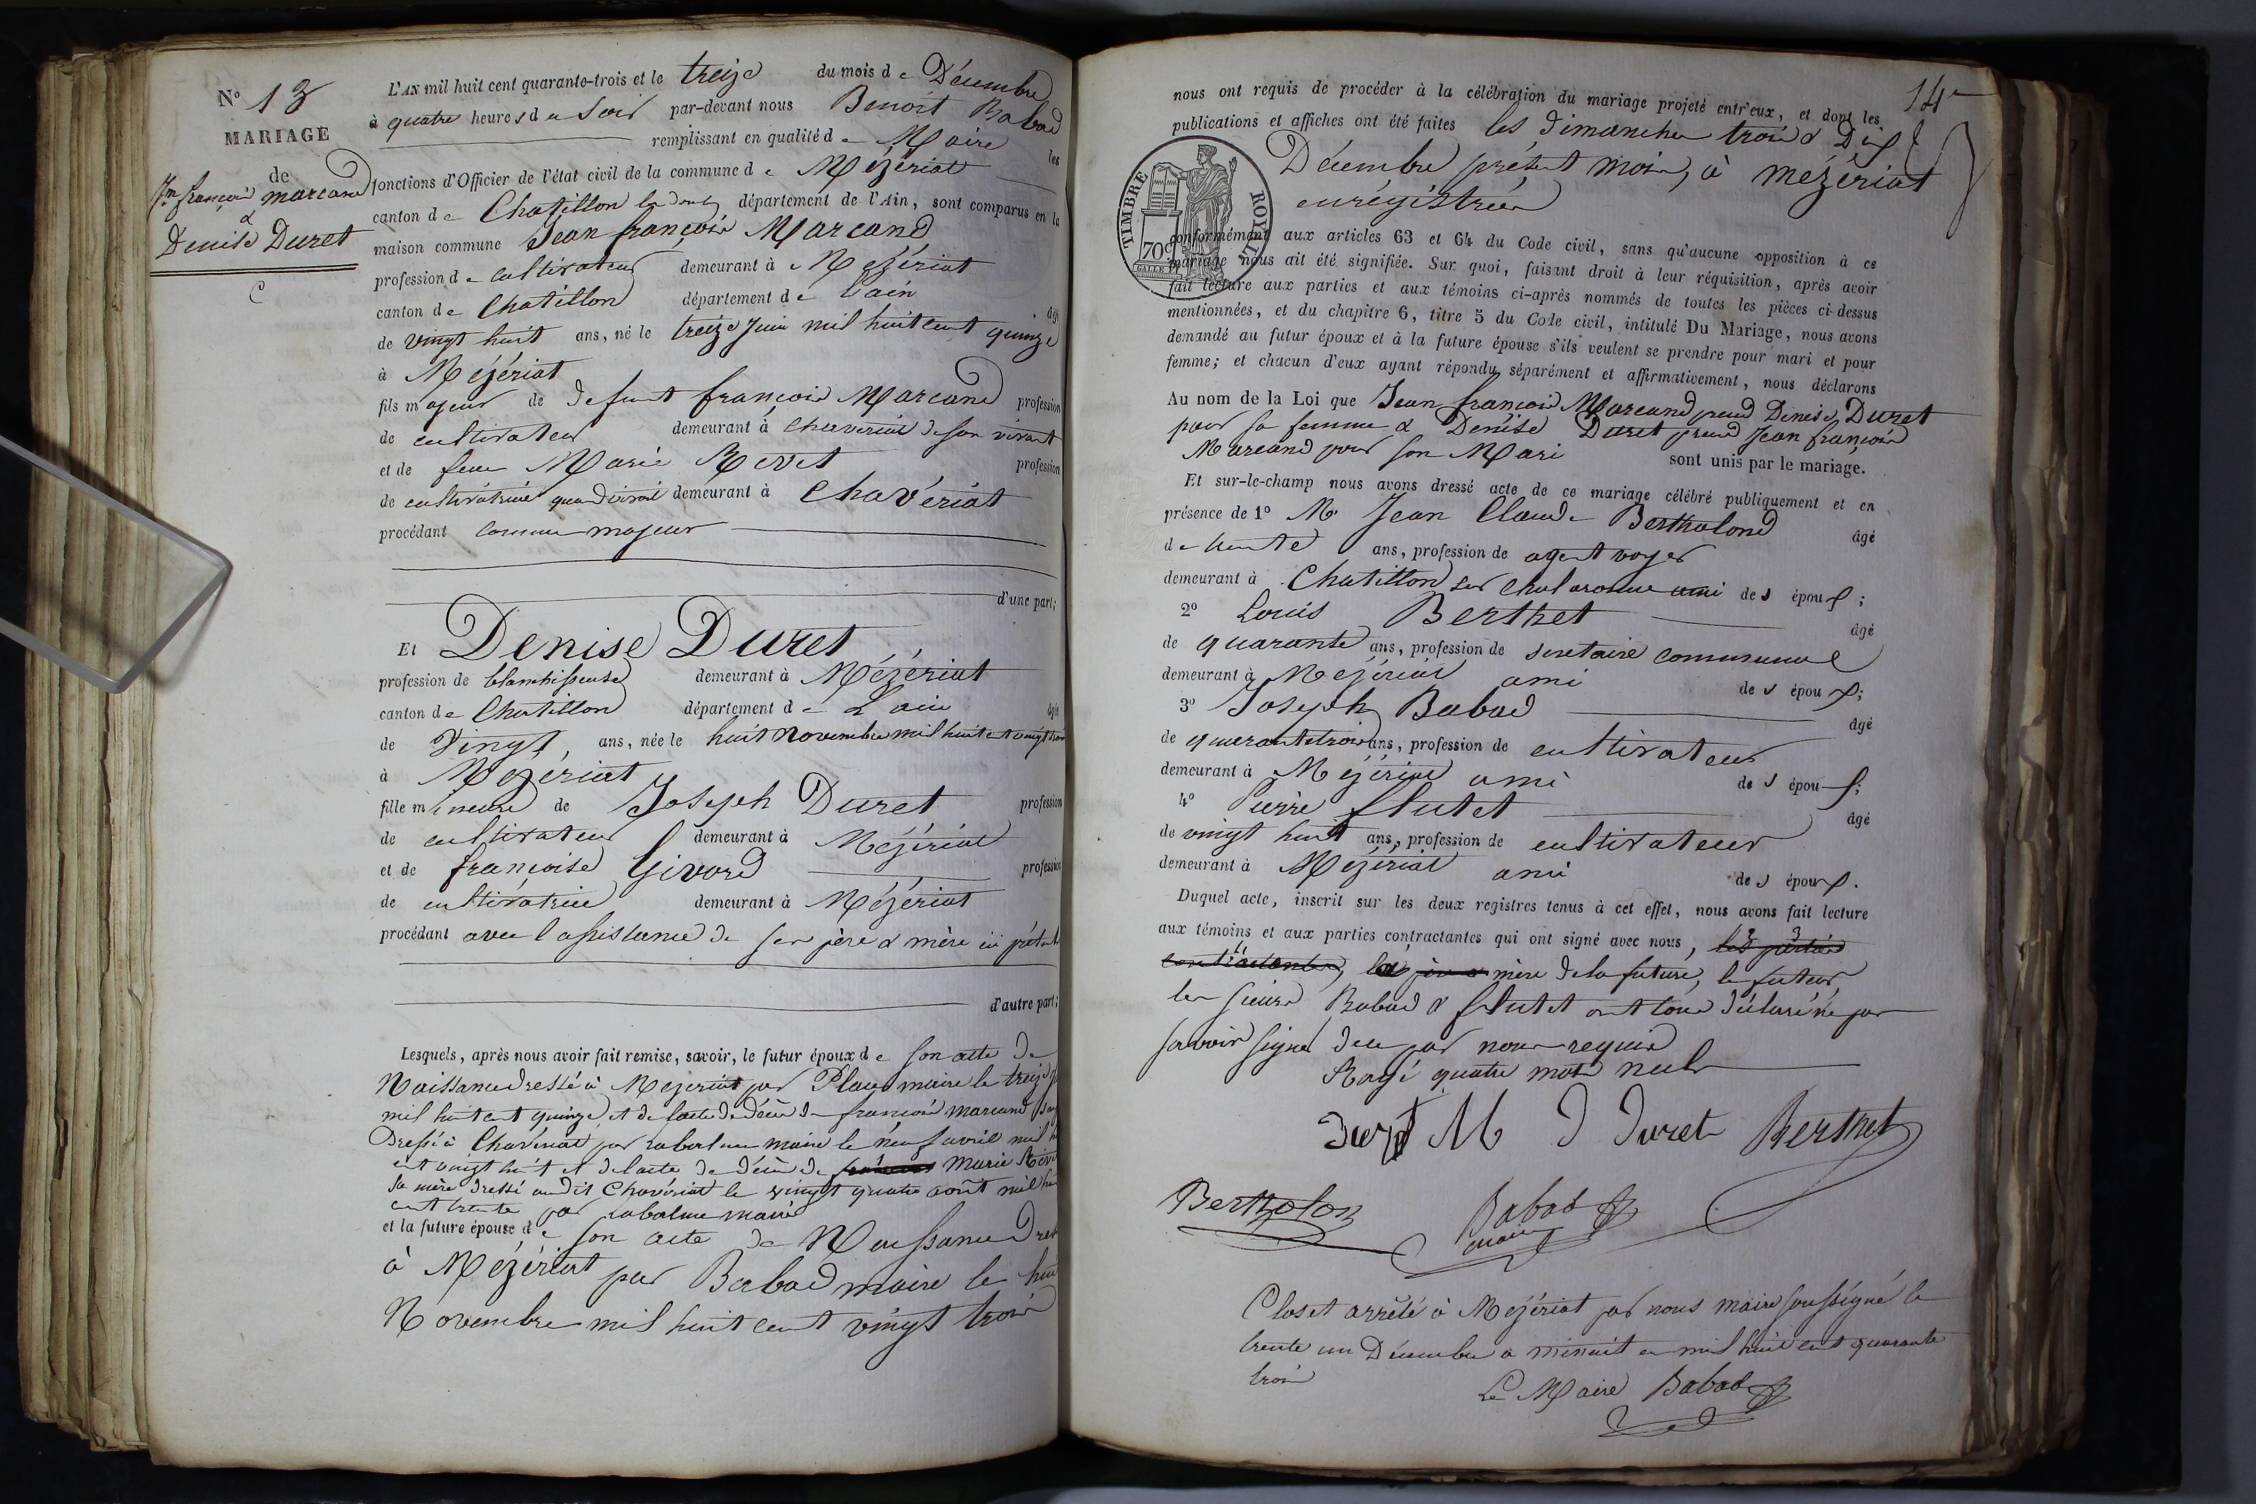 N.º 13
MARIAGE
de
Jn françois marcand
&
Denise Duret
L'AN mil huit cent quarante-trois et le treize du mois de Décembre
à quatre heures du Soir par-devant nous Benoit Babad
remplissant en qualité de Maire les
fonctions d'Officier de l'état civil de la commune de Mézériat
canton de Chatillon département de l'Ain, sont comparus en la
maison commune Jean françois Marcand
profession de cultivateur demeurant à Mézériat
canton de Chatillon département de l'ain âgé
de vingt huit ans, né le treize juin mil huit cent quinze
à Mézériat
fils majeur de defunt françois Marcand profession
de cultivateur demeurant à chaveriat de son vivant
et de feue Marie Revet profession
de cultivatrice quand vivait demeurant à Chavériat
procédant comme majeur
d'une part;
Et Denise Duret
profession de blanchisseuse demeurant à Mézériat
canton de Chatillon département de L'ain âgée
de Vingt, ans, née le huit Novembre mil huit cent vingt trois
à Mézériat
fille mineure de Joseph Duret profession
de cultivateur demeurant à Mézériat
et de françoise Givord profession
de cultivatrice demeurant à Mézériat
procédant avec l'assistance de ses père & mère ici présents
d'autre part;
Lesquels, après nous avoir fait remise, savoir, le futur époux de son acte de
Naissance dressé à Mezeriat par Place maire le treize
mil huit cent quinze, et de l'acte de décès de françois marcand
Dressé à Chavériat par maire le neuf avril mil
cent vingt huit et de l'acte de décès de Marie
Sa mère dressé audit Chavériat le vingt quatre août mil
cent trente par maire
et la future épouse de son acte de Naissance
à Mézériat par Babad maire le huit
Novembre mil huit cent vingt trois
14e
nous ont requis de procéder à la célébration du mariage projeté entr'eux, et dont les
publications et affiches ont été faites les dimanches trois & Dix
Décembre présent mois, à mézériat
enrégistrées
TIMBRE ROYAL
70c
conformément aux articles 63 et 64 du Code civil, sans qu'aucune opposition à ce
mariage nous ait été signifiée. Sur quoi, faisant droit à leur réquisition, après avoir
fait lecture aux parties et aux témoins ci-après nommés de toutes les pièces ci-dessus
mentionnées, et du chapitre 6, titre 5 du Code civil, intitulé Du Mariage, nous avons
demandé au futur époux et à la future épouse s'ils veulent se prendre pour mari et pour
femme; et chacun d'eux ayant répondu séparément et affirmativement, nous déclarons
Au nom de la Loi que Jean françois Marcand prend Denise Duret
pour sa femme & Denise Duret prend Jean françois
Marcand pour son Mari sont unis par le mariage.
Et sur-le-champ nous avons dressé acte de ce mariage célébré publiquement et en
présence de 1º M. Jean Claude Bertholond âgé
de trente ans, profession de agent voyer
demeurant à Chatillon sur chalaronne ami des époux;
2º Louis Berthet âgé
de quarante ans, profession de secretaire communal
demeurant à Mézériat ami des époux;
3º Joseph Babad âgé
de quarante trois ans, profession de cultivateur
demeurant à Mézériat ami des époux;
4º Pierre flutet âgé
de vingt huit ans, profession de cultivateur
demeurant à Mézériat ami des époux.
Duquel acte, inscrit sur les deux registres tenus à cet effet, nous avons fait lecture
aux témoins et aux parties contractantes qui ont signé avec nous, les parties
contractantes, la mère de la future, le futur,
les sieurs Babad & flutet ont tous déclaré ne pas
savoir signer de ce par nous requis
Rayé quatre mots nuls
M D Duret Berthet
Bertholon
Babad
maire
Clos et arrêté à Mézériat par nous maire soussigné le
trente un Décembre a minuit mil huit cent quarante
trois
Le Maire Babad